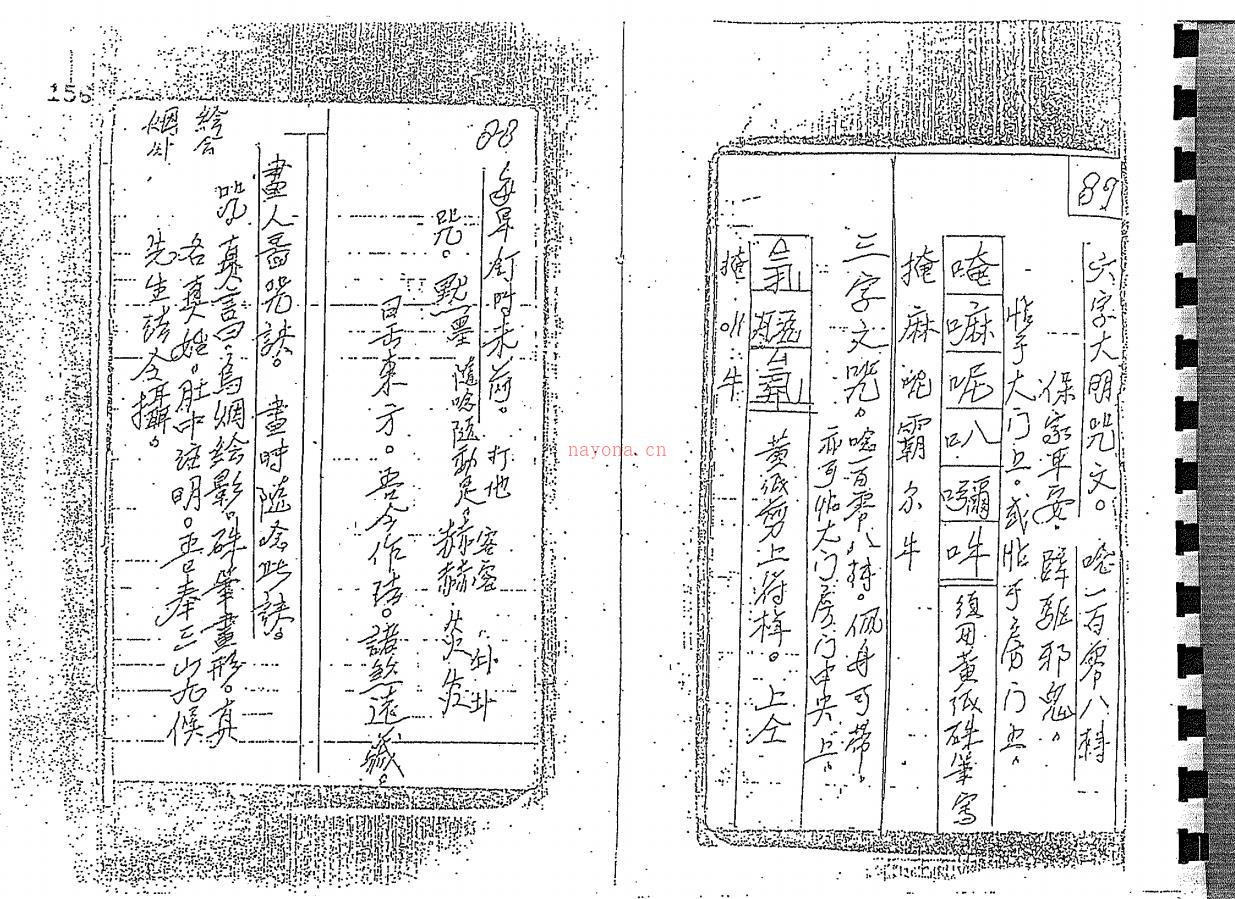 89
六字大明咒文。唸一百零八轉
保家平安。辟驱邪鬼。
帖于大门上。或帖于房门上。
唵嘛呢叭嚩吽 须用黄纸硃筆寫
掩麻呢霸尔牛
三字文咒。唸一百零八转。佩身可带。
亦可帖大门房门中央上。
黄纸剪上符样。上仝
掩 牛
88
每早釘時未前。打地
咒。點墨隨唸隨動是。赫赫炎炎
日出東方。吾今作法。諸煞遠藏。
畫人畫咒訣。畫時隨唸此訣。
咒真言曰。烏綢绘影。硃筆畫形。真
名真姓。肚中註明。吾奉三山九侯
先生諸令攝。
绘
156
nayona.cn